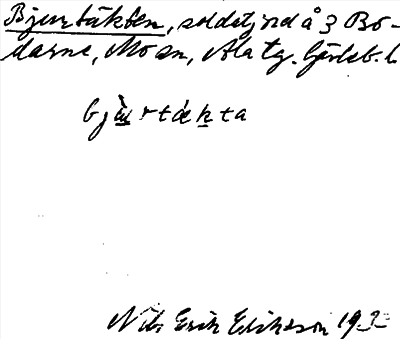 Bjurtäkten, soldatjord å 3 Bo-
darne, Mo sn, Ala tg. Gävleb. l.
bjùrtækta
Nils Erik Erikson 193